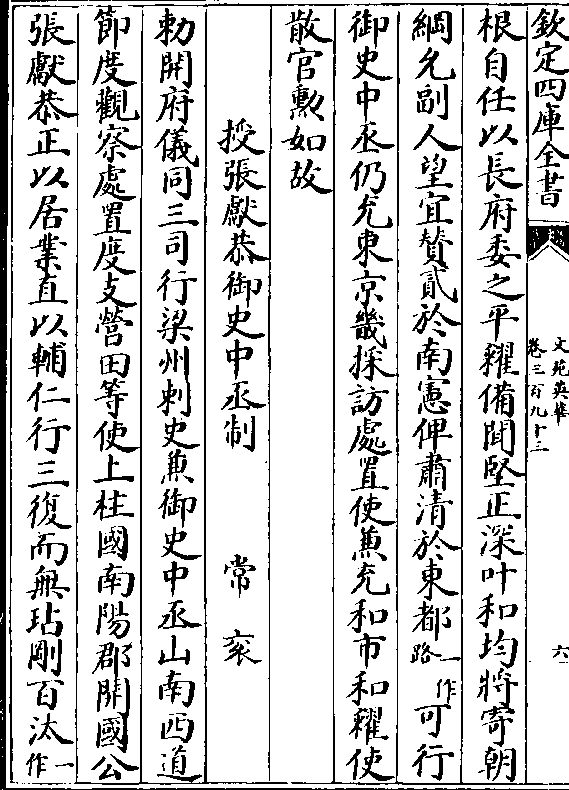 欽定四庫全書
文苑英華
卷三百九十三
六
根自任以長府委之平糴備聞堅正深叶和均將寄朝
綱允副人望宜贊貳於南憲俾肅清於東都一作路可行
御史中丞仍充東京畿採訪處置使兼充和市和糴使
散官勲如故
授張獻恭御史中丞制　常衮
勅開府儀同三司行梁州刺史兼御史中丞山南西道
節度觀察處置度支營田等使上柱國南陽郡開國公
張獻恭正以居業直以輔仁行三復而無玷剛百汰一作